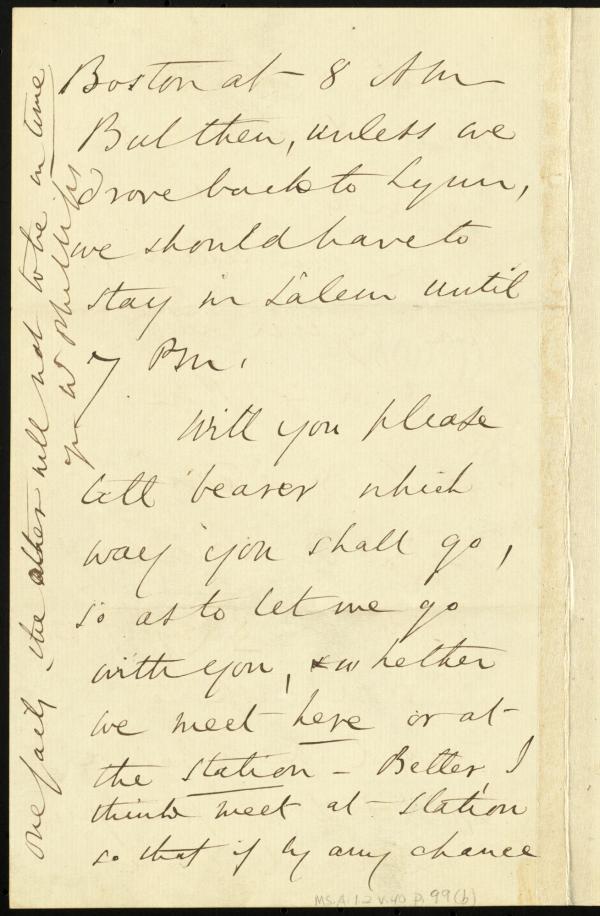 Boston at 8 AM
But then, unless we
drove back to Lynn,
we should have to
stay in Salem until
7 PM.
Will you please
tell bearer which
way you shall go,
so as to let me go
with you, & whether
we meet here or at
the station - Better, I
think meet at station
so that if by any chance
one fails, the other will not to be in time
yr W Phillips
MS.A.1.2 v.40 p.99(b)